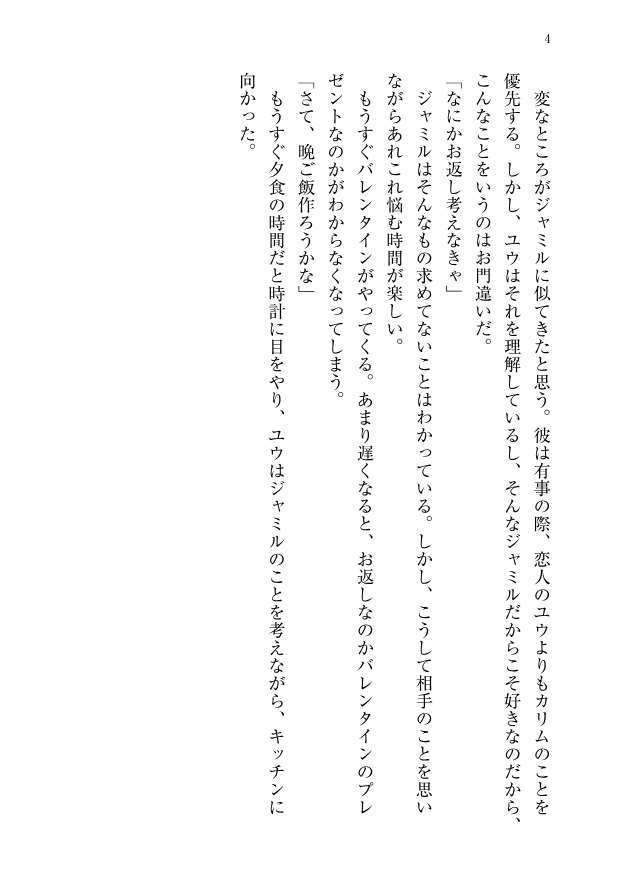 4
変なところがジャミルに似てきたと思う。彼は有事の際、恋人のユウよりもカリムのことを
優先する。しかし、ユウはそれを理解しているし、そんなジャミルだからこそ好きなのだから、
こんなことをいうのはお門違いだ。
「なにかお返し考えなきゃ」
ジャミルはそんなもの求めてないことはわかっている。しかし、こうして相手のことを思い
ながらあれこれ悩む時間が楽しい。
もうすぐバレンタインがやってくる。あまり遅くなると、お返しなのかバレンタインのプレ
ゼントなのかがわからなくなってしまう。
「さて、晩ご飯作ろうかな」
もうすぐ夕食の時間だと時計に目をやり、ユウはジャミルのことを考えながら、キッチンに
向かった。